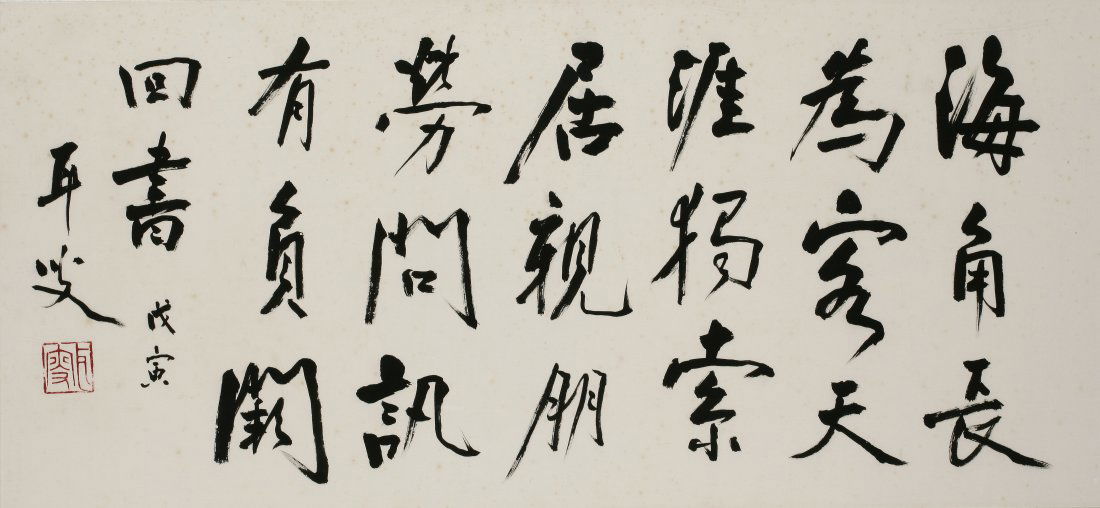 海角長
為客天
涯獨索
居親朋
勞問訊
有負闕
回書 戊寅
耳叟